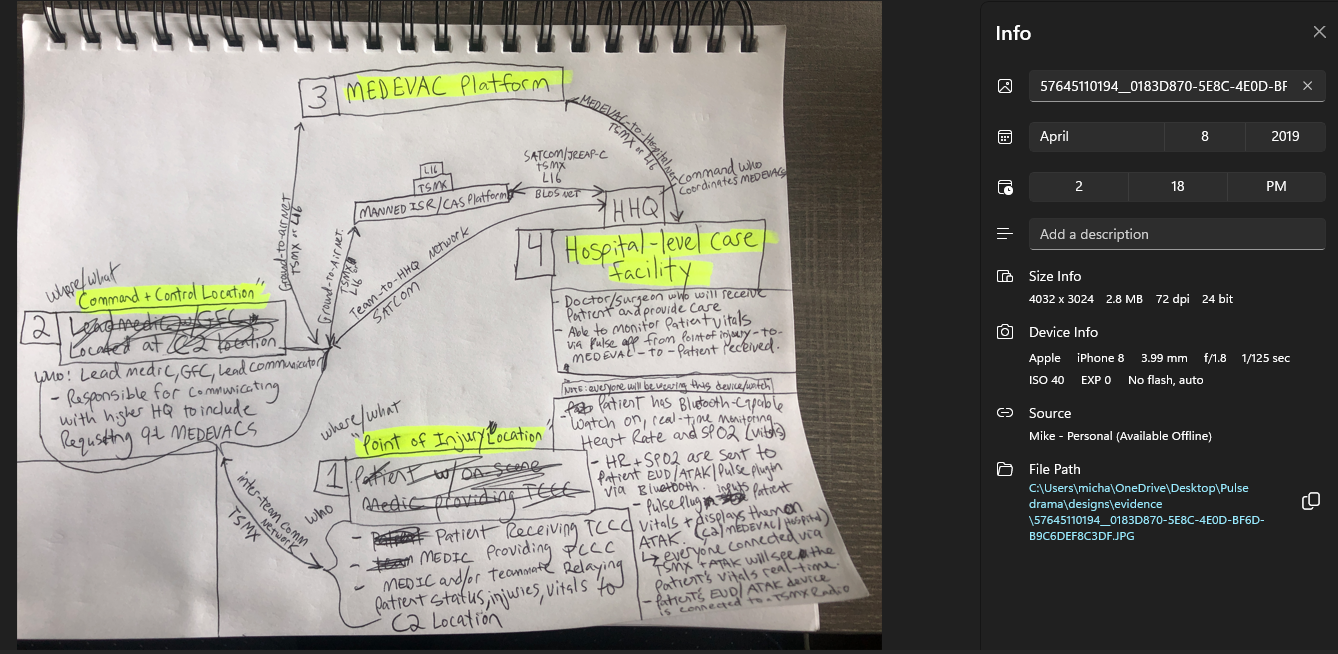 3
MEDEVAC Platform
MEDEVAC-to-Hospital Net
TSMX or L16
L16
TSMX
MANNED ISR/CAS Platform
SATCOM/JREAP-C
TSMX
L16
BLOS net
Command who
coordinates MEDEVACs
HHQ
4
Hospital-level care
facility
- Doctor/Surgeon who will receive
Patient and provide care
- Able to monitor Patient vitals
via Pulse app from Point of injury-to-
MEDEVAC-to-Patient received.
Ground-to-air Net
TSMX or L16
Ground-to-Air Net.
TSMX or
L16
Team-to-HHQ Network
SATCOM
where/what
"Command + Control Location"
2
Lead medic w/GFC
Located at C2 location
WHO: Lead medic, GFC, Lead communicator
- Responsible for communicating
with higher HQ to include
Requsting 9L MEDEVACs
where/what
"Point of Injury Location"
1
Patient w/on scene
Medic providing TCCC
inter-team comm
Network
TSMX
WHO
- Patient Receiving TCCC
- MEDIC Providing TCCC
- MEDIC and/or Teammate Relaying
Patient status, injuries, vitals to
C2 Location
NOTE: everyone will be wearing this device/watch
- Patient has Bluetooth-Capable
Watch on, real-time monitoring
Heart Rate and SPO2 (vitals)
- HR + SPO2 are sent to
Patient EUD/ATAK/Pulse plugin
via Bluetooth.
- Pulse plugin inputs Patient
vitals + displays them on
ATAK. (C2/MEDEVAC/Hospital)
↳ everyone connected via
TSMX + ATAK will see the
Patient's vitals real-time.
- Patient's EUD/ATAK device
is connected to a TSMX Radio
Info
57645110194__0183D870-5E8C-4E0D-BF
April 8 2019
2 18 PM
Add a description
Size Info
4032 x 3024 2.8 MB 72 dpi 24 bit
Device Info
Apple iPhone 8 3.99 mm f/1.8 1/125 sec
ISO 40 EXP 0 No flash, auto
Source
Mike - Personal (Available Offline)
File Path
C:\Users\micha\OneDrive\Desktop\Pulse
drama\designs\evidence
\57645110194__0183D870-5E8C-4E0D-BF6D-
B9C6DEF8C3DF.JPG